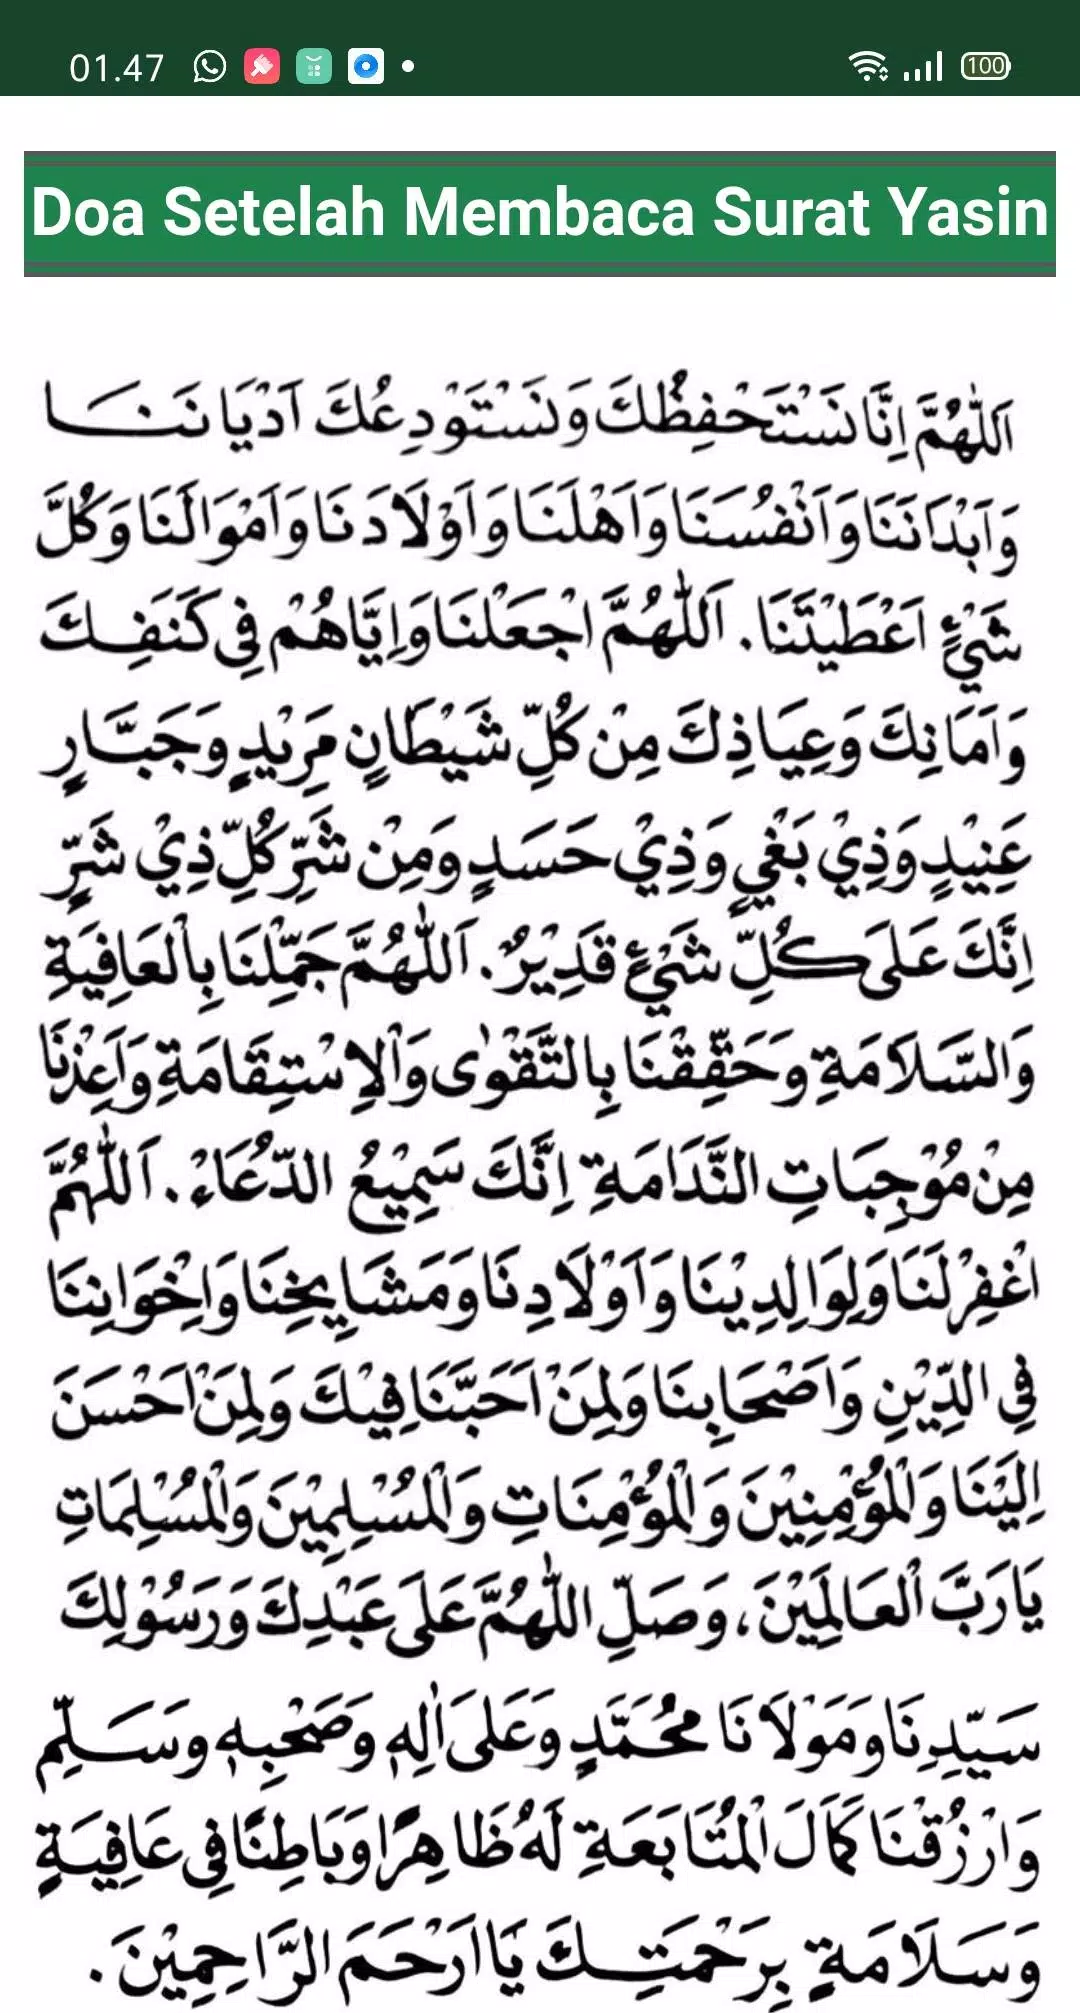 01.47
100
Doa Setelah Membaca Surat Yasin
اَللّٰهُمَّ اِنَّا نَسْتَحْفِظُكَ وَنَسْتَوْدِعُكَ اَدْيَانَنَا
وَاَبْدَانَنَا وَاَنْفُسَنَا وَاَهْلَنَا وَاَوْلَادَنَا وَاَمْوَالَنَا وَكُلَّ
شَيْءٍ اَعْطَيْتَنَا. اَللّٰهُمَّ اجْعَلْنَا وَاِيَّاهُمْ فِي كَنَفِكَ
وَاَمَانِكَ وَعِيَاذِكَ مِنْ كُلِّ شَيْطَانٍ مَرِيْدٍ وَجَبَّارٍ
عَنِيْدٍ وَذِيْ بَغْيٍ وَذِيْ حَسَدٍ وَمِنْ شَرِّ كُلِّ ذِيْ شَرٍّ
اِنَّكَ عَلَى كُلِّ شَيْءٍ قَدِيْرٌ. اَللّٰهُمَّ جَمِّلْنَا بِالْعَافِيَةِ
وَالسَّلَامَةِ وَحَقِّقْنَا بِالتَّقْوٰى وَالْاِسْتِقَامَةِ وَاَعِذْنَا
مِنْ مُوْجِبَاتِ النَّدَامَةِ اِنَّكَ سَمِيْعُ الدُّعَاءْ. اَللّٰهُمَّ
اغْفِرْ لَنَا وَلِوَالِدِيْنَا وَاَوْلَادِنَا وَمَشَايِخِنَا وَاِخْوَانِنَا
فِي الدِّيْنِ وَاَصْحَابِنَا وَلِمَنْ اَحَبَّنَا فِيْكَ وَلِمَنْ اَحْسَنَ
اِلَيْنَا وَالْمُؤْمِنِيْنَ وَالْمُؤْمِنَاتِ وَالْمُسْلِمِيْنَ وَالْمُسْلِمَاتِ
يَارَبَّ الْعَالَمِيْنَ، وَصَلِّ اللّٰهُمَّ عَلَى عَبْدِكَ وَرَسُوْلِكَ
سَيِّدِنَا وَمَوْلَانَا مُحَمَّدٍ وَعَلَى اٰلِهِ وَصَحْبِهِ وَسَلِّمْ
وَارْزُقْنَا كَمَالَ الْمُتَابَعَةِ لَهُ ظَاهِرًا وَبَاطِنًا فِي عَافِيَةٍ
وَسَلَامَةٍ بِرَحْمَتِكَ يَا اَرْحَمَ الرَّاحِمِيْنَ.